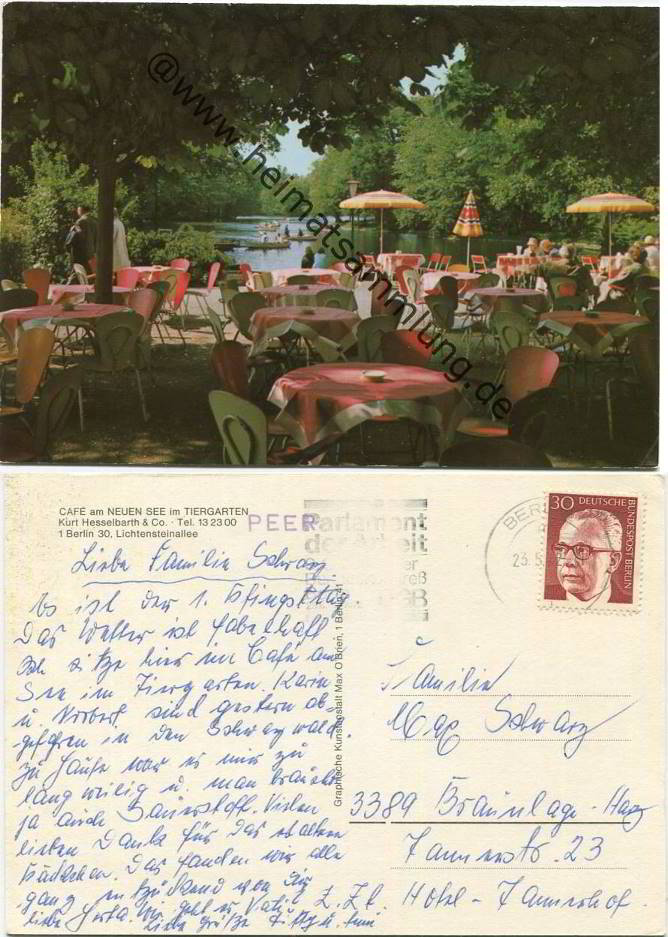 @www.heimatsammlung.de
CAFÉ am NEUEN SEE im TIERGARTEN
Kurt Hesselbarth & Co. · Tel. 13 23 00
1 Berlin 30, Lichtensteinallee
PEER
Parlament
der
BERL
23.5.
30 DEUTSCHE BUNDESPOST BERLIN
Graphische Kunstanstalt Max O'Brien, 1 Berlin 41
Liebe Familie Schwarz
Es ist der 1. Pfingsttag.
Das Wetter ist fabelhaft
Ich sitze hier im Café am
See im Tiergarten. Karin
u. Norbert sind gestern ab-
gefahren in den Schwarzwald.
Zu Hause war es mir zu
langweilig u. man braucht
ja auch Sauerstoff. Vielen
lieben Dank für das
Das fanden wir alle
ganz entzückend von Dir
liebe Herta. geht es
liebe Grüße
Familie
Max Schwarz
3389 Braunlage-Harz
Tannerstr. 23
z. Zt. Hotel-Tannerhof.